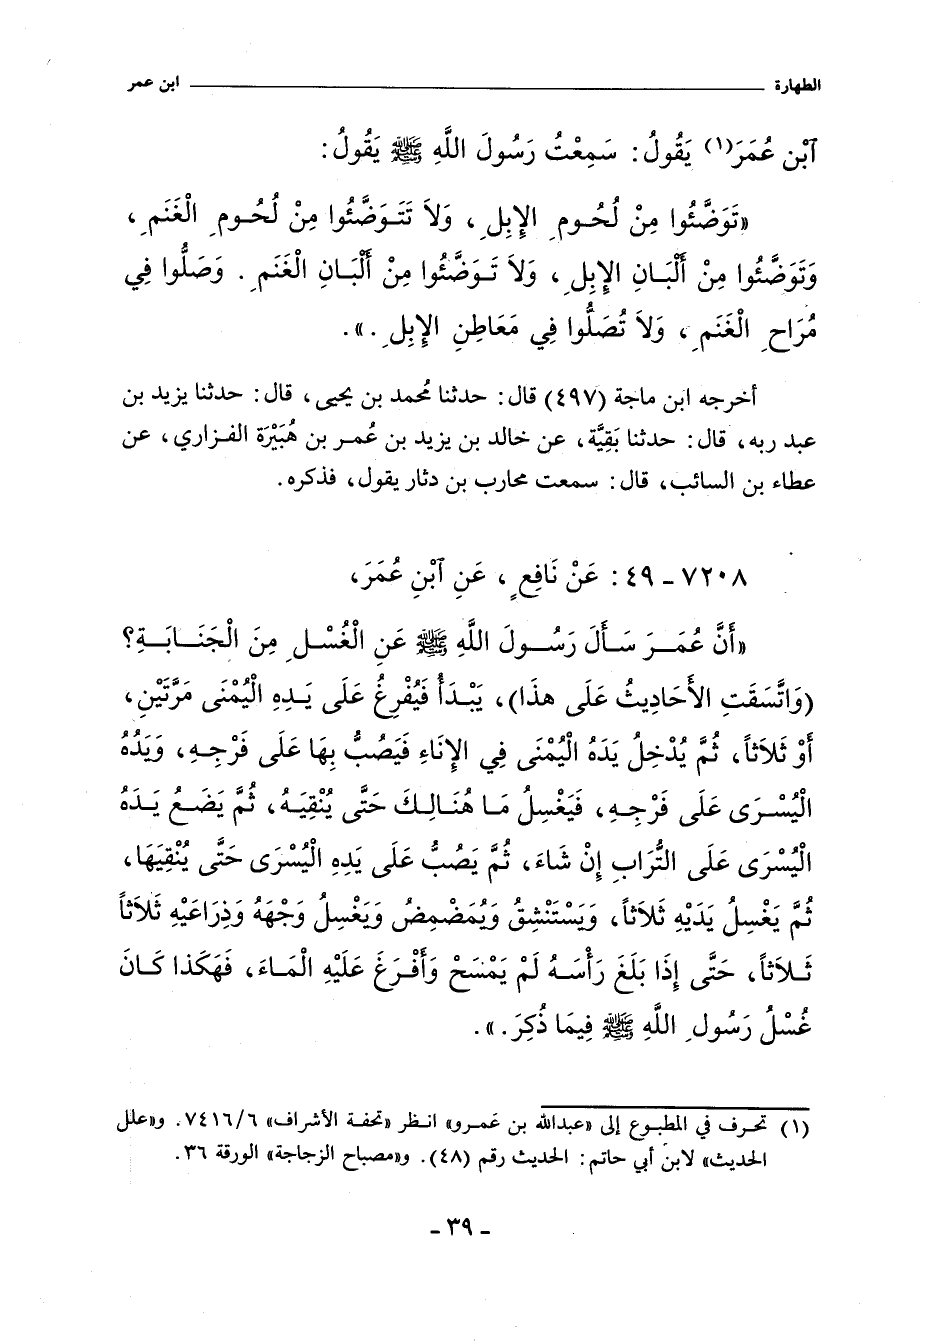 الطهارة ابن عمر
آبْنِ عُمَرَ(١) يَقُولُ: سَمِعْتُ رَسُولَ اللَّهِ ﷺ يَقُولُ:
«تَوَضَّئُوا مِنْ لُحُومِ الإِبِلِ، وَلاَ تَتَوَضَّئُوا مِنْ لُحُومِ الْغَنَمِ،
وَتَوَضَّئُوا مِنْ أَلْبَانِ الإِبِلِ، وَلاَ تَوَضَّئُوا مِنْ أَلْبَانِ الْغَنَمِ. وَصَلُّوا فِي
مُرَاحِ الْغَنَمِ، وَلاَ تُصَلُّوا فِي مَعَاطِنِ الإِبِلِ.».
أخرجه ابن ماجة (٤٩٧) قال: حدثنا مُحمد بن يحيى، قال: حدثنا يزيد بن
عبد ربه، قال: حدثنا بَقِيَّة، عن خالد بن يزيد بن عُمر بن هُبَيْرَة الفزاري، عن
عطاء بن السائب، قال: سمعت محارب بن دثار يقول، فذكره.
٧٢٠٨ - ٤٩: عَنْ نَافِعٍ، عَنِ آبْنِ عُمَرَ،
«أَنَّ عُمَرَ سَأَلَ رَسُولَ اللَّهِ ﷺ عَنِ الْغُسْلِ مِنَ الْجَنَابَةِ؟
(وَاتَّسَقَتِ الأَحَادِيثُ عَلَى هذَا)، يَبْدَأُ فَيُفْرِغُ عَلَى يَدِهِ الْيُمْنَى مَرَّتَيْنِ،
أَوْ ثَلاَثاً، ثُمَّ يُدْخِلُ يَدَهُ الْيُمْنَى فِي الإِنَاءِ فَيَصُبُّ بِهَا عَلَى فَرْجِهِ، وَيَدُهُ
الْيُسْرَى عَلَى فَرْجِهِ، فَيَغْسِلُ مَا هُنَالِكَ حَتَّى يُنْقِيَهُ، ثُمَّ يَضَعُ يَدَهُ
الْيُسْرَى عَلَى التُّرَابِ إِنْ شَاءَ، ثُمَّ يَصُبُّ عَلَى يَدِهِ الْيُسْرَى حَتَّى يُنْقِيَهَا،
ثُمَّ يَغْسِلُ يَدَيْهِ ثَلاَثاً، وَيَسْتَنْشِقُ وَيُمَضْمِضُ وَيَغْسِلُ وَجْهَهُ وَذِرَاعَيْهِ ثَلاَثاً
ثَلاَثاً، حَتَّى إِذَا بَلَغَ رَأْسَهُ لَمْ يَمْسَحْ وَأَفْرَغَ عَلَيْهِ الْمَاءَ، فَهكَذَا كَانَ
غُسْلُ رَسُولِ اللَّهِ ﷺ فِيمَا ذُكِرَ.».
(١) تحرف في المطبوع إلى «عبدالله بن عَمرو» انظر «تحفة الأشراف» ٧٤١٦/٦. و«علل
الحديث» لابن أبي حاتم: الحديث رقم (٤٨). و«مصباح الزجاجة» الورقة ٣٦.
- ٣٩ -